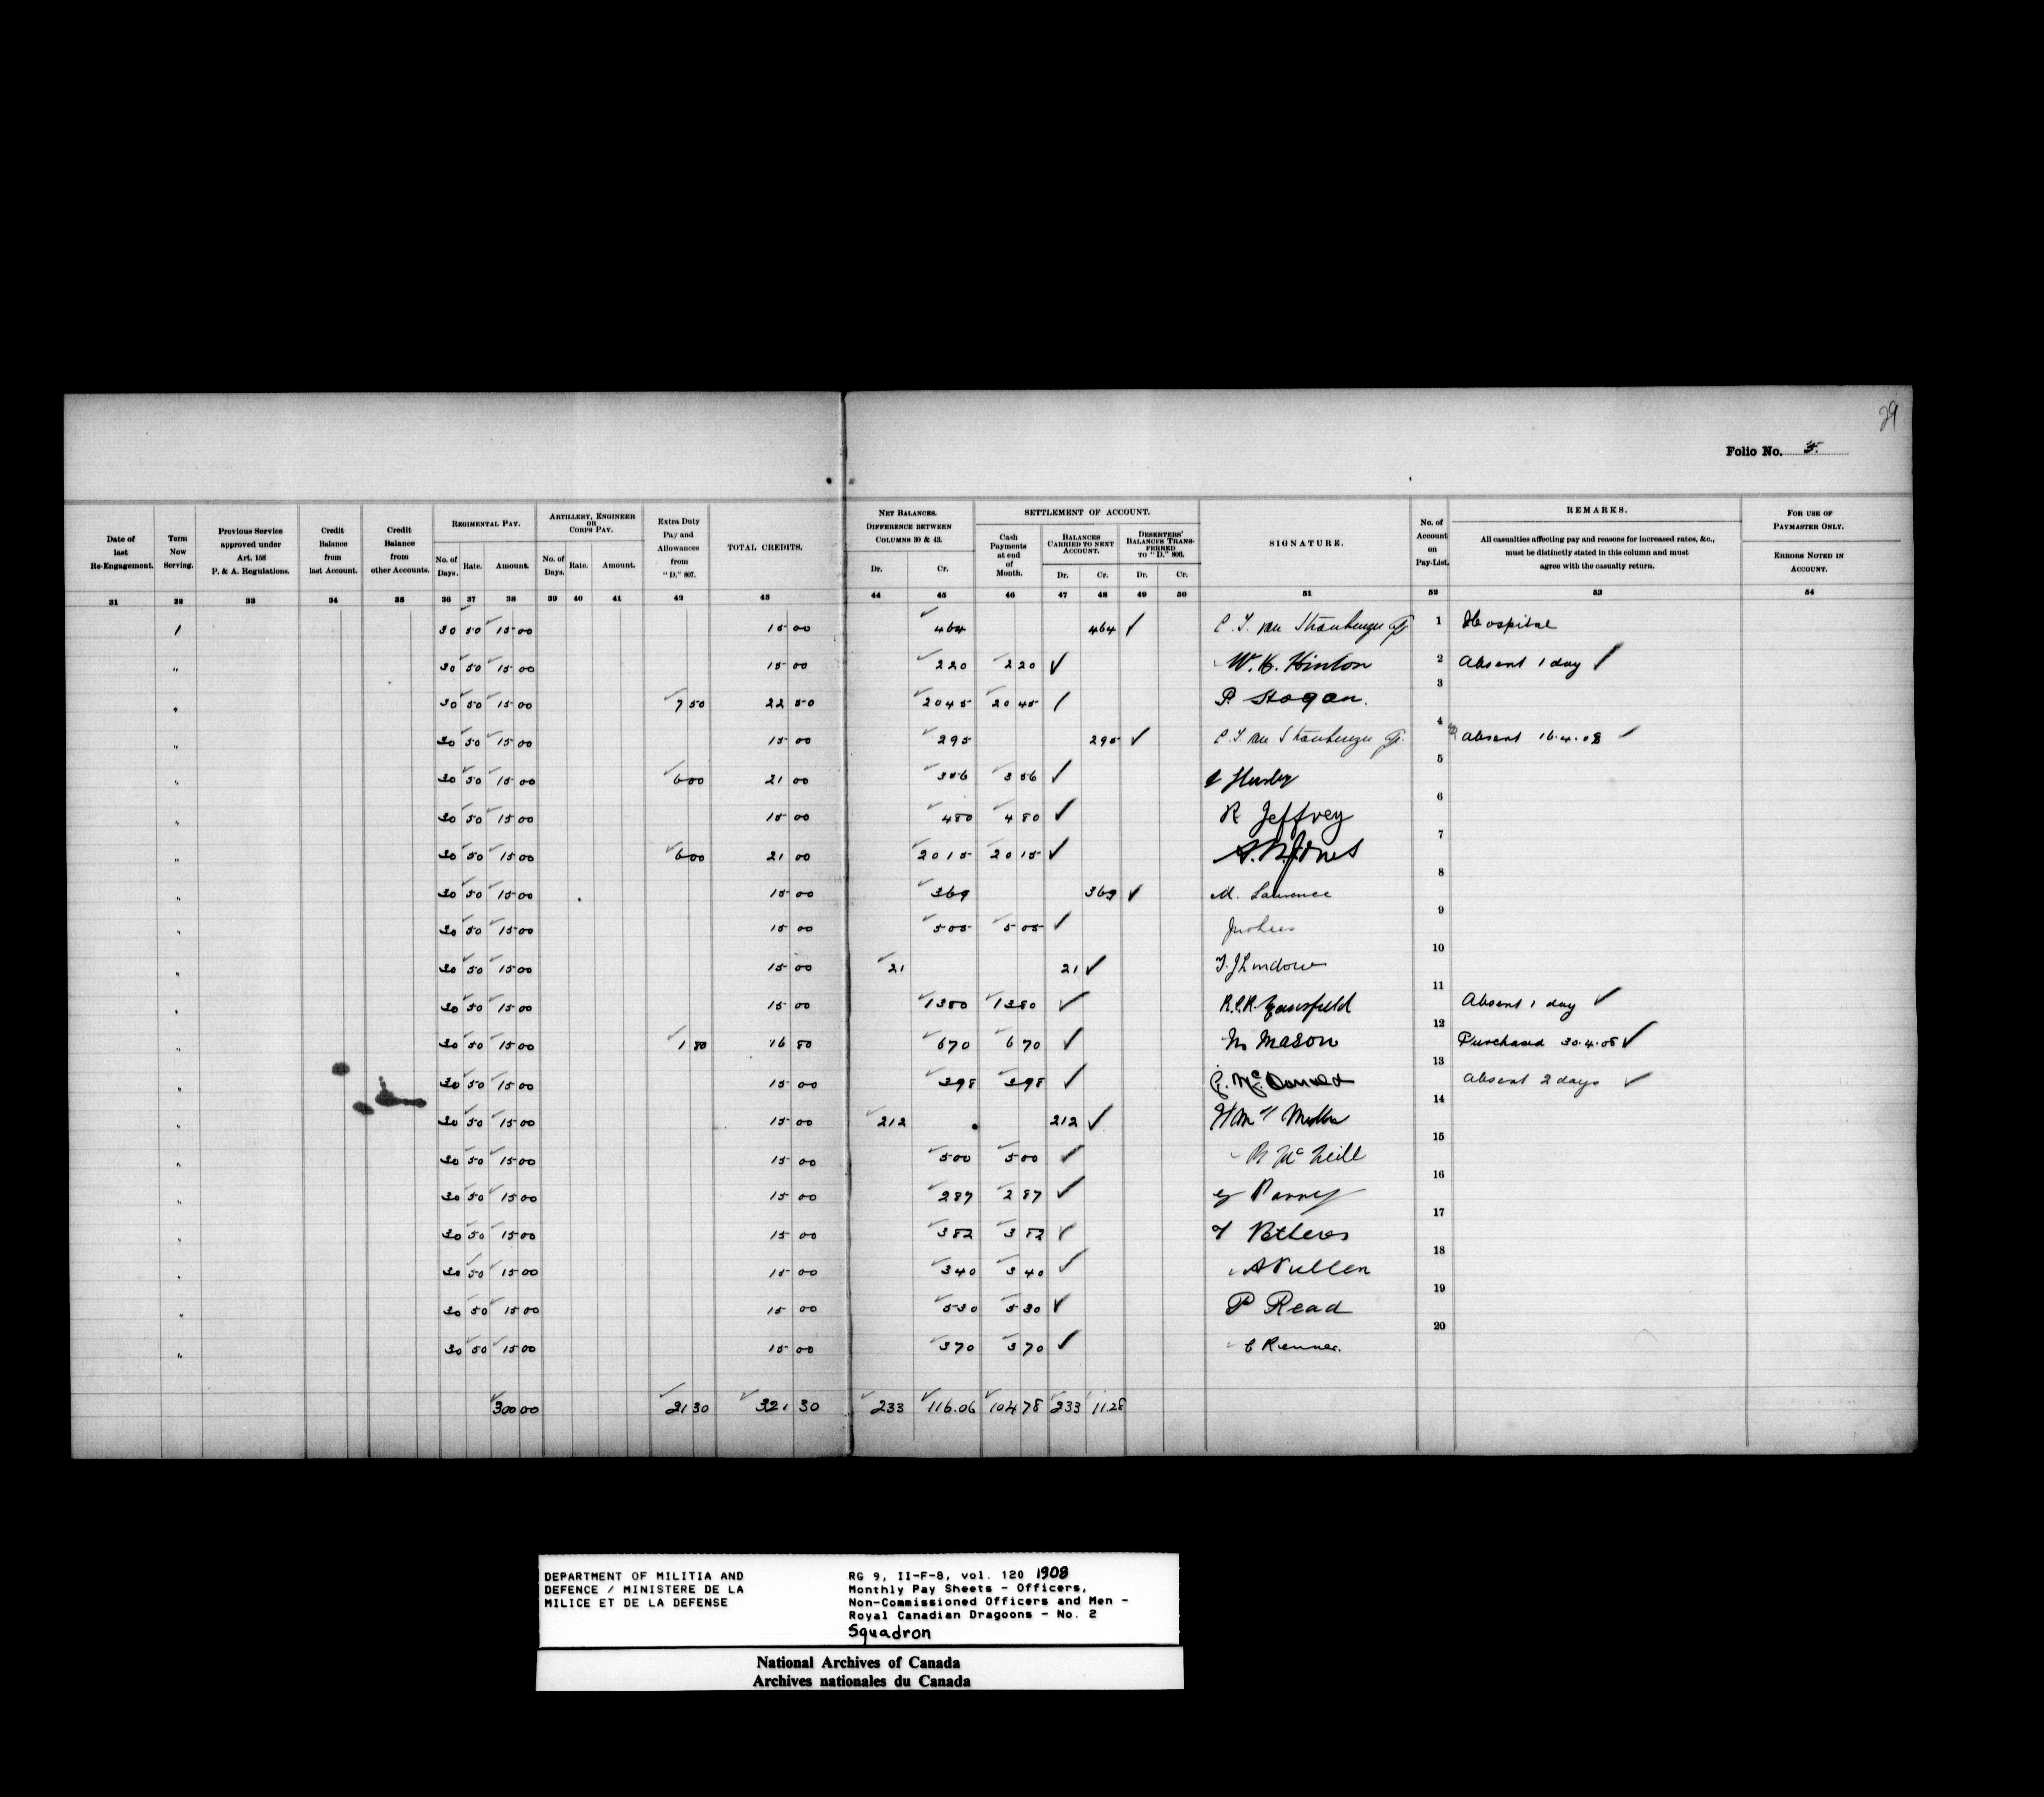 29
Folio No. 5.
Date of last Re-Engagement.
Term Now Serving.
Previous Service approved under Art. 156 P. & A. Regulations.
Credit Balance from last Account.
Credit Balance from other Accounts.
REGIMENTAL PAY.
No. of Days. Rate. Amount.
ARTILLERY, ENGINEER OR CORPS PAY.
No. of Days. Rate. Amount.
Extra Duty Pay and Allowances from "D." 807.
TOTAL CREDITS.
NET BALANCES. DIFFERENCE BETWEEN COLUMNS 30 & 43.
Dr. Cr.
SETTLEMENT OF ACCOUNT.
Cash Payments at end of Month.
BALANCES CARRIED TO NEXT ACCOUNT.
Dr. Cr.
DESERTERS' BALANCES TRANSFERRED TO "D." 806.
Dr. Cr.
SIGNATURE.
No. of Account on Pay-List.
REMARKS.
All casualties affecting pay and reasons for increased rates, &c., must be distinctly stated in this column and must agree with the casualty return.
FOR USE OF PAYMASTER ONLY.
ERRORS NOTED IN ACCOUNT.
31 32 33 34 35 36 37 38 39 40 41 42 43 44 45 46 47 48 49 50 51 52 53 54
1 30 50 15 00 15 00 464 464 ✓ 1 Hospital
" 30 50 15 00 15 00 220 2 20 ✓ W. H. Hinton 2 Absent 1 day ✓
" 30 50 15 00 7 50 22 50 2045 20 45 ✓ P. Hogan. 3
" 30 50 15 00 15 00 295 295 ✓ 4 Absent 16.4.08 ✓
" 30 50 15 00 6 00 21 00 356 3 56 ✓ 5
" 30 50 15 00 15 00 480 4 80 ✓ R Jeffrey 6
" 30 50 15 00 6 00 21 00 2015 20 15 ✓ A. B. Jones 7
" 30 50 15 00 15 00 369 369 ✓ M. Lawrence 8
" 30 50 15 00 15 00 505 5 05 ✓ 9
" 30 50 15 00 15 00 21 21 ✓ T. J Lindow 10
" 30 50 15 00 15 00 1380 13 80 ✓ 11 Absent 1 day ✓
" 30 50 15 00 1 80 16 80 670 6 70 ✓ Mason 12 Purchased 30.4.08 ✓
" 30 50 15 00 15 00 398 3 98 ✓ McDonald 13 Absent 2 days ✓
" 30 50 15 00 15 00 212 212 ✓ 14
" 30 50 15 00 15 00 500 5 00 ✓ McNeill 15
" 30 50 15 00 15 00 287 2 87 ✓ 16
" 30 50 15 00 15 00 382 3 82 ✓ 17
" 30 50 15 00 15 00 340 3 40 ✓ A Pullen 18
" 30 50 15 00 15 00 530 5 30 ✓ P Read 19
" 30 50 15 00 15 00 370 3 70 ✓ C Renner. 20
300 00 21 30 321 30 233 116.06 104 78 233 11.28
DEPARTMENT OF MILITIA AND
DEFENCE / MINISTERE DE LA
MILICE ET DE LA DEFENSE
RG 9, II-F-8, vol. 120 1908
Monthly Pay Sheets - Officers,
Non-Commissioned Officers and Men -
Royal Canadian Dragoons - No. 2
Squadron
National Archives of Canada
Archives nationales du Canada